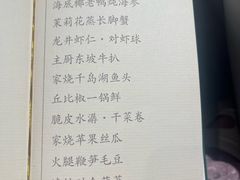 海底椰老鸭炖海参
茉莉花蒸长脚蟹
龙井虾仁·对虾球
主厨东坡牛扒
家烧千岛湖鱼头
丘比椒一锅鲜
脆皮水潺·干菜卷
家烧苹果丝瓜
火腿鞭笋毛豆